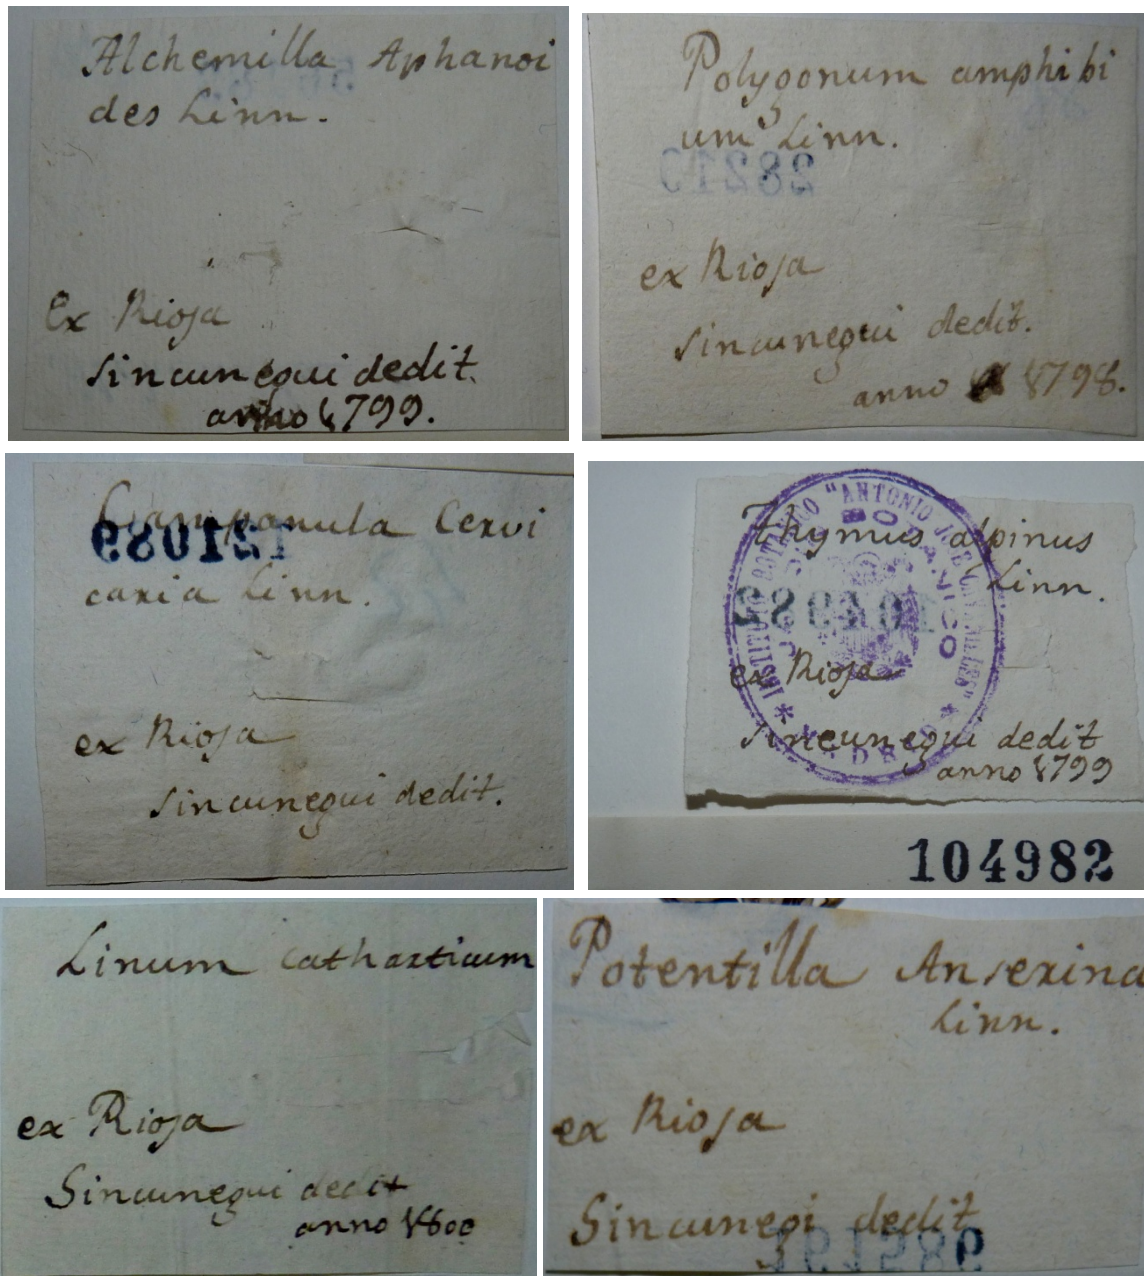 Alchemilla Aphanoi
des Linn.
ex Rioja
Sincunegui dedit.
anno 1799.
Polygonum amphibi
um Linn.
28219
ex Rioja
Sincunegui dedit.
anno 1798.
Campanula Cervi
caria Linn.
ex Rioja
Sincunegui dedit.
INSTITUTO BOTANICO "ANTONIO JOSE CAVANILLES"
JARDIN BOTANICO
MADRID
Thymus alpinus
Linn.
104982
ex Rioja
Sincunegui dedit
anno 1799
104982
Linum catharticum
ex Rioja
Sincunegui dedit
anno 1800
Potentilla Anserina
Linn.
ex Rioja
Sincunegi dedit